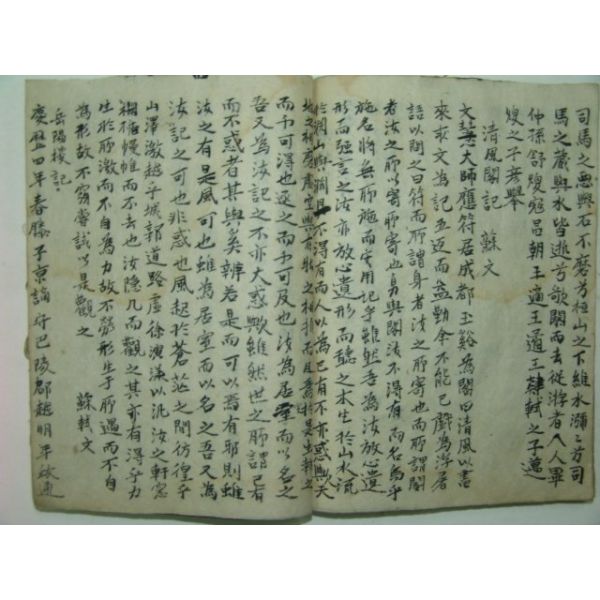 司馬之惡與石不磨兮桓山之下維水瀰〻兮司
馬之藏與水皆逝兮歌闋而去從游者八人畢
仲孫舒煥寇昌朝王適王遹王肄軾之子邁
煥之子彥舉
清風閣記 蘇文
文慧大師應符居成都玉谿爲閣曰清風以書
來求文爲記五返而益勤余不能已戲爲浮屠
語以問之曰符而所謂身者汝之所寄也而所謂閣
者汝之所以寄所寄也身與閣汝不得有而名烏乎
施名將無所施而安用記乎雖然吾爲汝放心遺
形而强言之汝亦放心遺形而聽之木生於山水流
於淵山與淵且不得有而人以爲己有不亦惑歟天
地之相磨虛空與有物之相推而風於是生執之
而不可得也逐之而不可及也汝爲居室而以名之
吾又爲汝記之不亦大惑歟雖然世之所謂己有
而不惑者其與奚辨若是而可以爲有邪則雖
汝之有是風可也雖爲居室而以名之吾又爲
汝記之可也非惑也風起於蒼茫之間彷徨乎
山澤激越乎城郭道路虛徐演漾以汎汝之軒窓
欄楯幔帷而不去也汝隱几而觀之其亦有得乎力
生於所激而不自爲力故不勞形生于所遇而不自
爲形故不窮嘗試以是觀之 蘇軾文
岳陽樓記
慶曆四年春滕子京謫守巴陵郡越明年政通